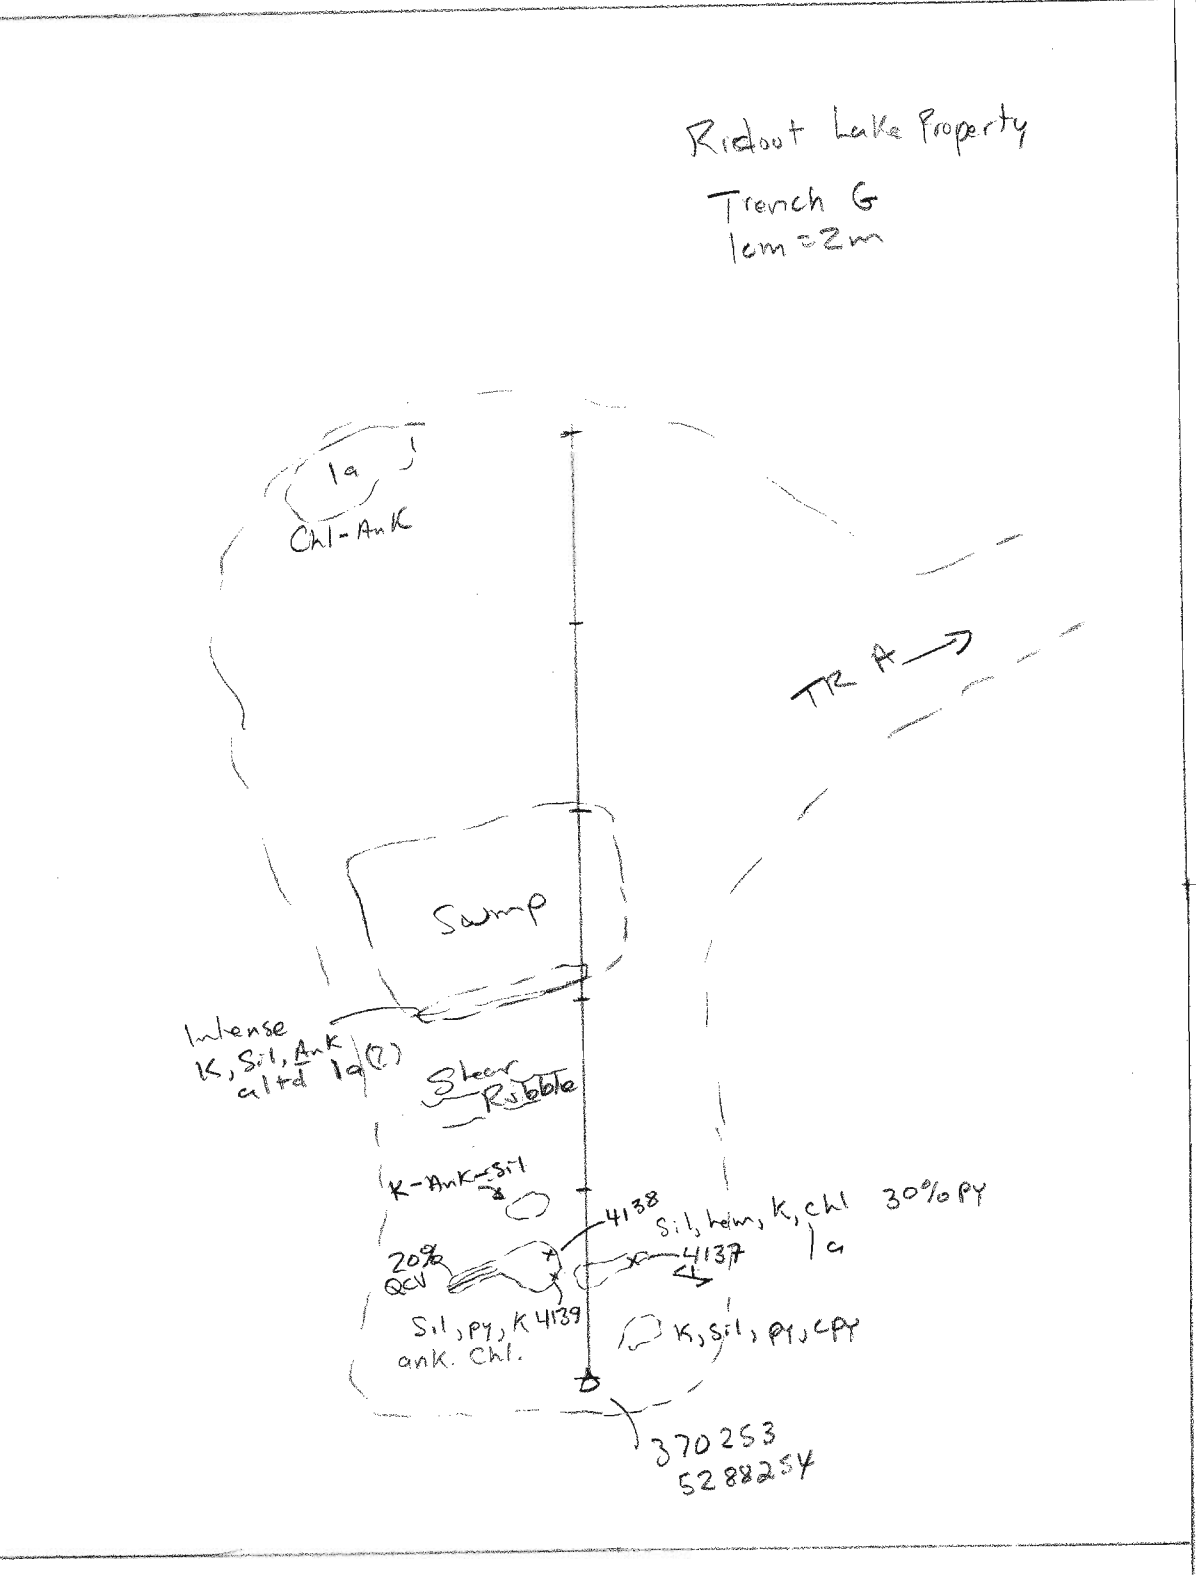 Ridout Lake Property
Trench G
1cm = 2m
1a
Chl-Ank
TR A
Swmp
Intense
K, Sil, Ank
altd 1a(?)
Shear
Rubble
K-Ank-Sil
4138
Sil, hem, K, chl 30% py
1a
4137
20%
QCV
Sil, py, K
ank. Chl.
4139
K, Sil, py, cpy
370253
5288254